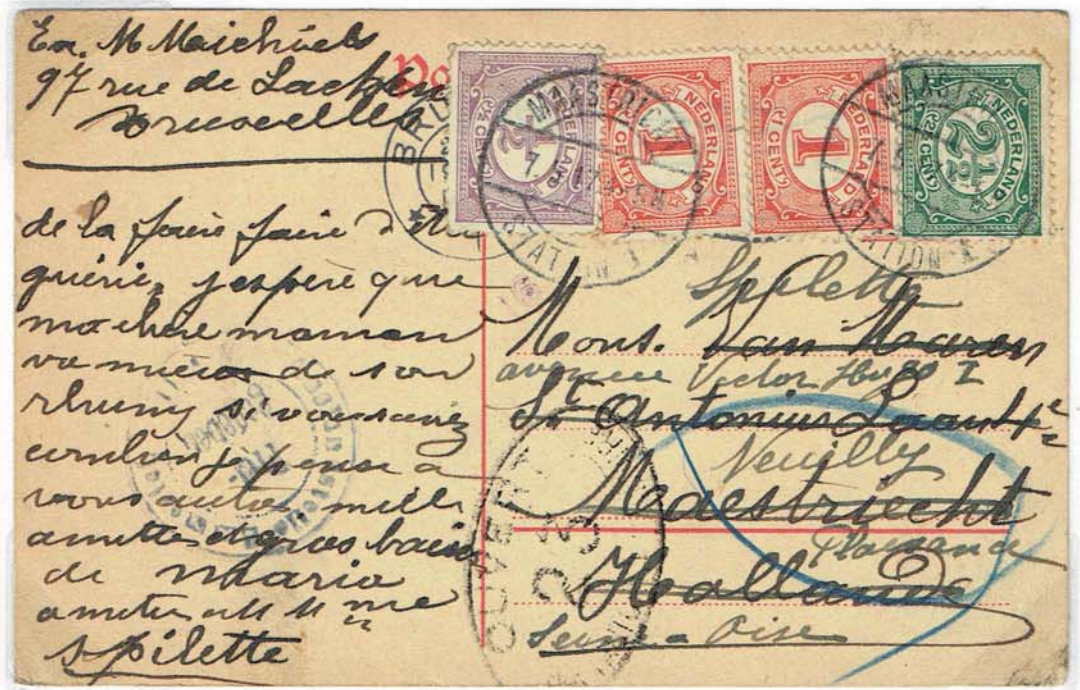 Ex. M Maichiels
97 rue de Laeken
Bruxelles
de la faire faire
guérie, j'espere que
ma chere maman
va mieux de son
si vous saviez
combien je pense a
vous autres mille
amities et gros baise
de maria
amities a M me
Spilette
1 NEDERLAND 1
1 CENT
1 NEDERLAND 1
1 CENT
2½ NEDERLAND
2½ CENT
MAASTRICHT
STATION 1
MAASTRICHT
STATION 1
Spilette
Mons. Van Haren
avenue Victor Hugo I
St Antonius Laan 4
Neuilly
Maestriecht
Plaisance
Hollande
Seine a Oise
OUVERT